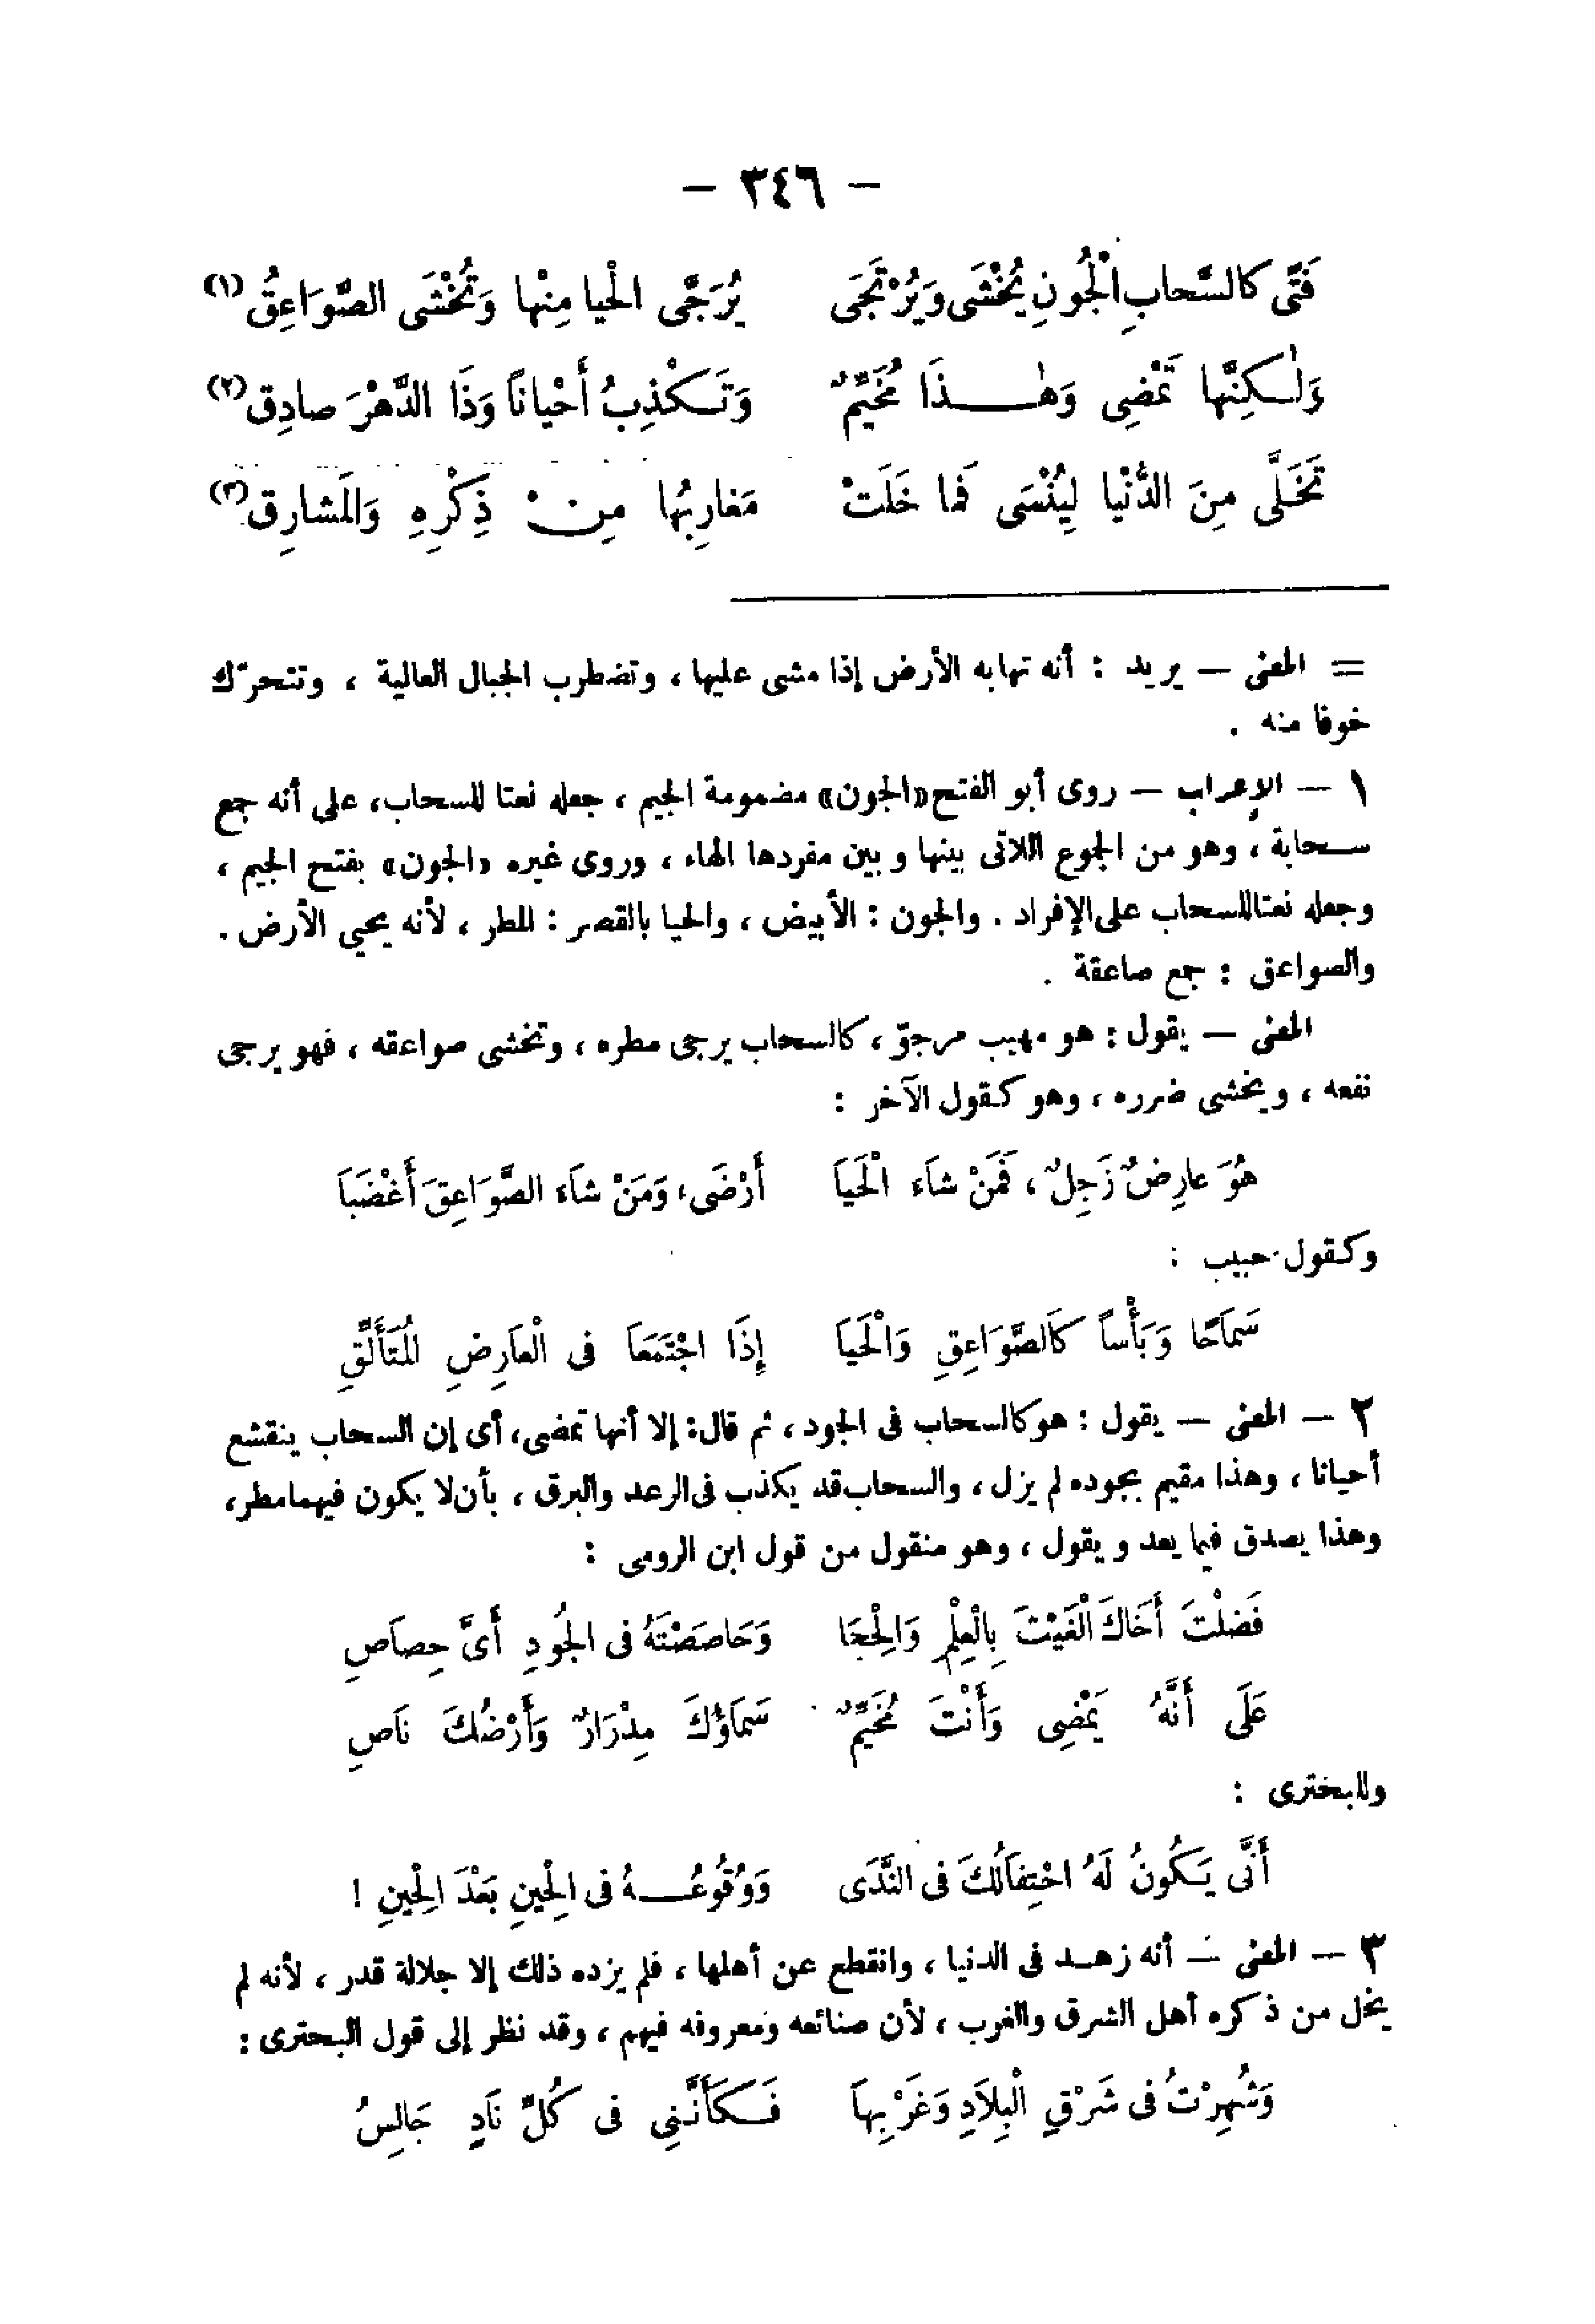 — ٣٤٦ —
فَتًى كالسَّحابِ الْجُونِ يُخْشَى وَيُرْتَجَى يُرَجَّى الْحيا مِنْها وَتُخْشَى الصَّوَاعِقُ (١)
وَلٰكِنَّها تَمْضِى وَهٰذَا مُخَيِّمٌ وَتَكْذِبُ أَحْياناً وَذَا الدَّهْرَ صادِق (٢)
تَخَلَّى مِنَ الدُّنْيا لِيُنْسَى فَما خَلَتْ مَغارِبُها مِنْ ذِكْرِهِ وَالمَشارِق (٣)
= المعنى — يريد : أنه تهابه الأرض إذا مشى عليها ، وتضطرب الجبال العالية ، وتتحرّك
خوفا منه .
١ — الإعراب — روى أبو الفتح «الجون» مضمومة الجيم ، جعله نعتا للسحاب، على أنه جمع
سحابة ، وهو من الجموع اللاتى بينها وبين مفردها الهاء ، وروى غيره «الجون» بفتح الجيم ،
وجعله نعتا للسحاب على الإفراد . والجون : الأبيض ، والحيا بالقصر : المطر ، لأنه يحيي الأرض .
والصواعق : جمع صاعقة .
المعنى — يقول : هو مهيب مرجوّ ، كالسحاب يرجى مطره ، وتخشى صواعقه ، فهو يرجى
نفعه ، ويخشى ضرره ، وهو كقول الآخر :
هُوَ عارِضٌ زَجِلٌ ، فَمَنْ شاَء الْحَياَ أَرْضَى ، وَمَنْ شاَء الصَّوَاعِقَ أَغْضَباَ
وكقول حبيب :
سَماَحًا وَبَأْساً كَالصَّوَاعِقِ وَالْحَياَ إِذَا اجْتَمَعاَ فى الْعاَرِضِ المُتَأَلِّقِ
٢ — المعنى — يقول : هو كالسحاب فى الجود ، ثم قال: إلا أنها تمضى، أى إن السحاب ينقشع
أحيانا ، وهذا مقيم بجوده لم يزل ، والسحاب قد يكذب فى الرعد والبرق ، بأن لا يكون فيهما مطر،
وهذا يصدق فيما يعد ويقول ، وهو منقول من قول ابن الرومى :
فَضَلْتَ أَخَاكَ الْغَيْثَ بِالْعِلْمِ وَالْحِجَا وَحَاصَصْتَهُ فى الجُودِ أَىَّ حِصاَصِ
عَلَى أَنَّهُ يَمْضِى وَأَنْتَ مُخَيِّمٌ سَماَؤُكَ مِدْرَارٌ وَأَرْضُكَ نَاصِ
وللبخترى :
أَنَّى يَكُونُ لَهُ احْتِفاَلُكَ فى النَّدَى وَوُقُوعُهُ فى الْحِينِ بَعْدَ الْحِينِ !
٣ — المعنى — أنه زهد فى الدنيا ، وانقطع عن أهلها ، فلم يزده ذلك إلا جلالة قدر ، لأنه لم
يخل من ذكره أهل الشرق والغرب ، لأن صنائعه ومعروفه فيهم ، وقد نظر إلى قول البحترى :
وَشُهِرْتُ فى شَرْقِ الْبِلاَدِ وَغَرْبِهاَ فَكَأَنَّنِى فى كُلِّ نَادٍ جَالِسُ